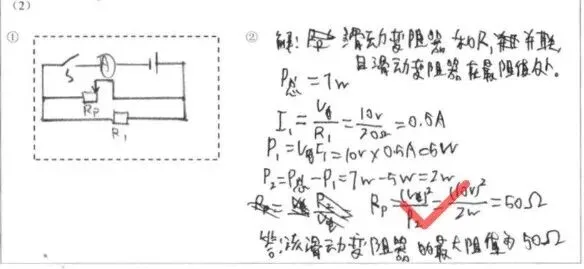 (2)
①
S
A
RP
R1
② 解: 滑动变阻器和R1并联
且滑动变阻器在最大阻值处。
P总=7w
I1=U总/R1=10v/20Ω=0.5A
P1=U总I1=10v×0.5A=5W
P2=P总-P1=7w-5w=2w
RP=(U总)²/P2=(10v)²/2w=50Ω
答:该滑动变阻器的最大阻值为50Ω